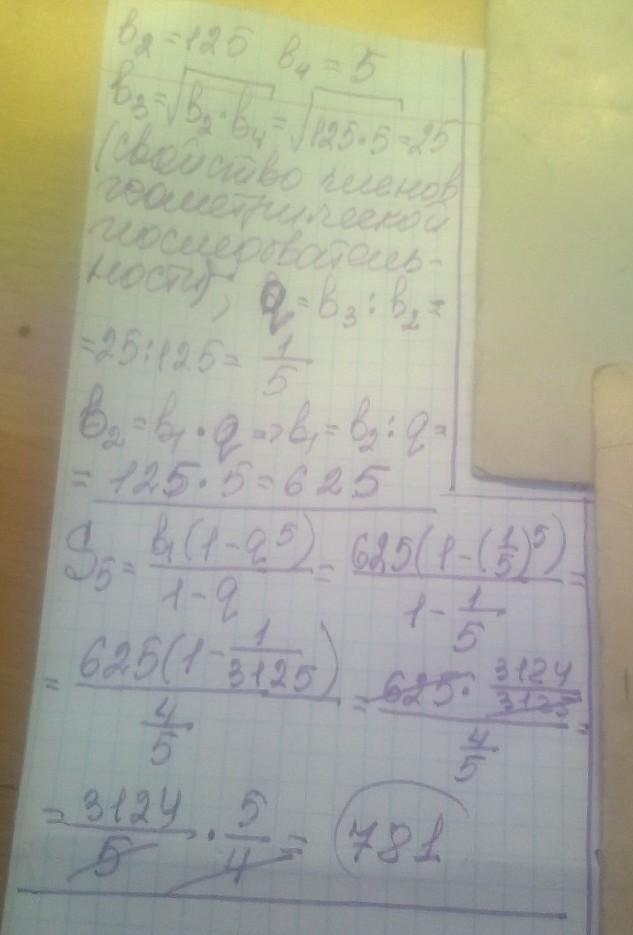 b₂ = 125 b₄ = 5
b₃ = √(b₂·b₄) = √(125·5) = 25
(свойство членов
геометрической
последователь-
ности), q = b₃ : b₂ =
= 25 : 125 = 1/5
b₂ = b₁ · q => b₁ = b₂ : q =
= 125 · 5 = 625
S₅ = b₁(1 - q⁵)/(1 - q) = 625(1 - (1/5)⁵)/(1 - 1/5) =
= 625(1 - 1/3125)/(4/5) = (625 · 3124/3125)/(4/5) =
= 3124/5 · 5/4 = 781